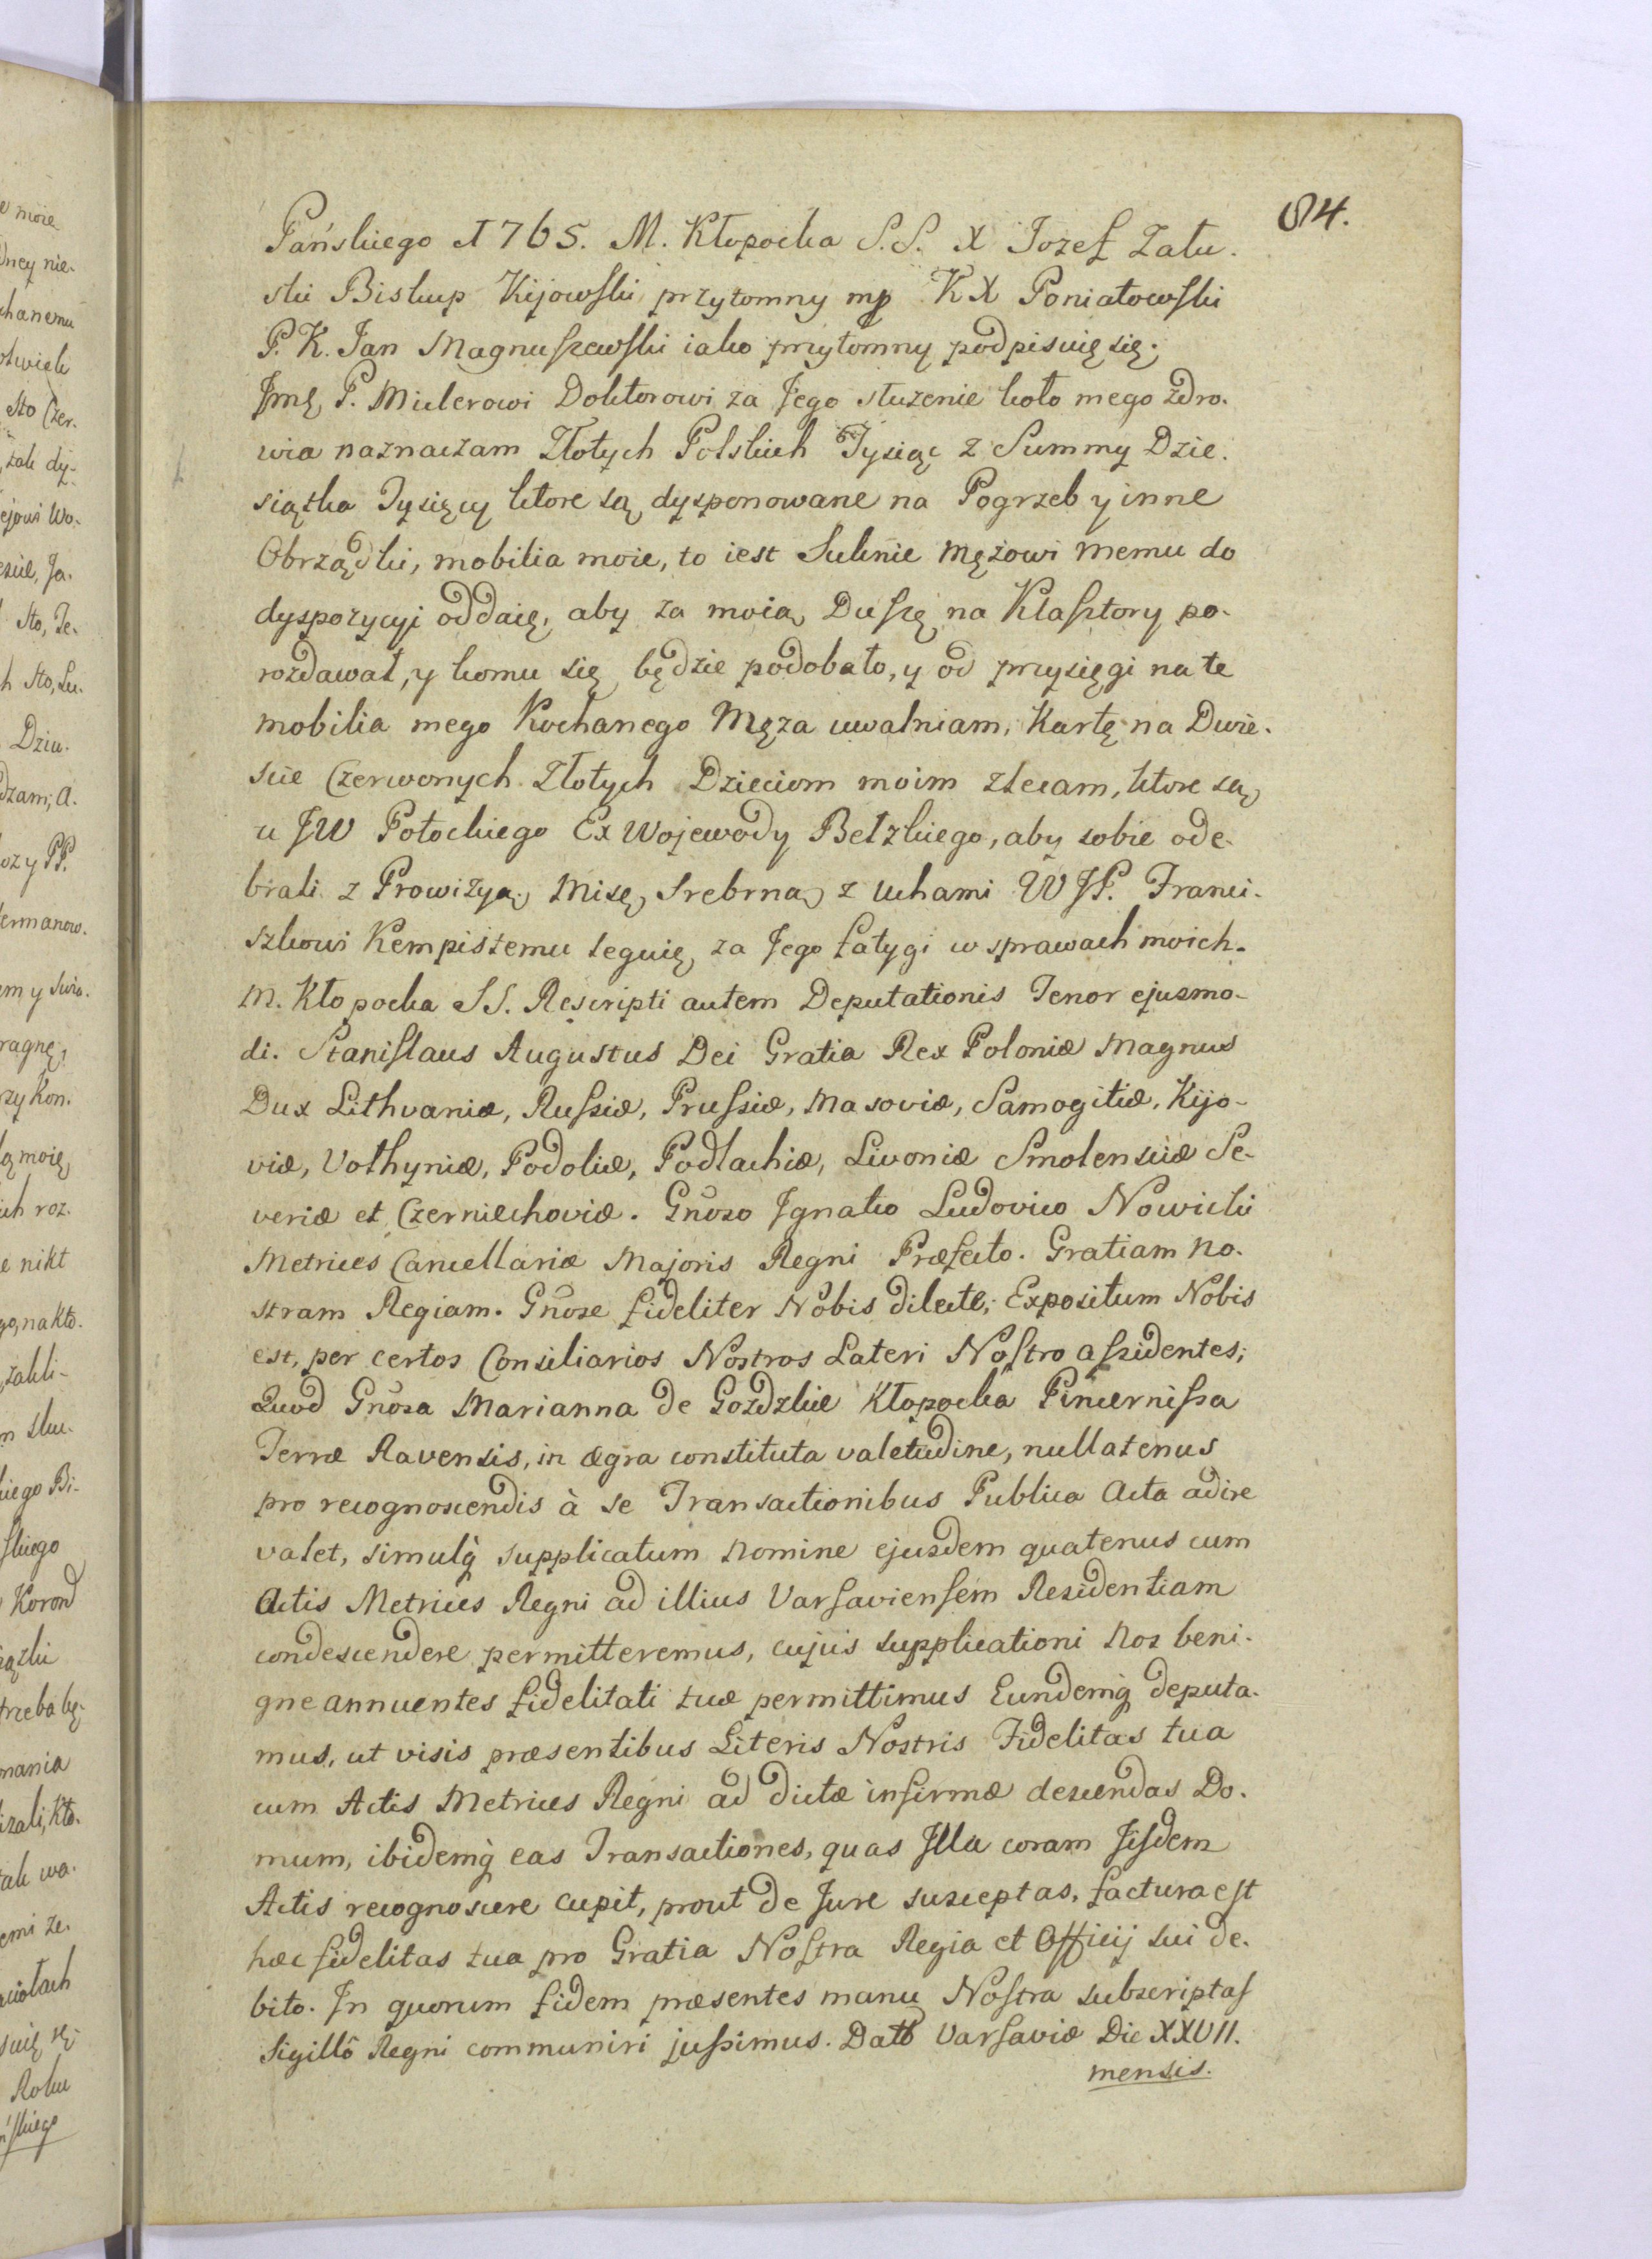 84.
Pańskiego 1765. M. Kłopocka S.S. X Jozef Zału-
ski Biskup Kijowski przytomny mp KX Poniatowski
P. K. Jan Magnuszewski iako przytomny podpisuię się;
Jmę P. Mulerowi Doktorowi za Jego służenie koło mego zdro-
wia naznaczam Złotych Polskich Tysiąc z Summy Dzie-
siątka Tysięcy ktore są dysponowane na Pogrzeb y inne
Obrządki, mobilia moie, to iest Suknie Mężowi memu do
dyspozycyi oddaię, aby za moią Duszę na Klasztory po-
rozdawał, y komu się będzie podobało, y od przysięgi na te
mobilia mego Kochanego Męża uwalniam, Kartę na Dwie-
ście Czerwonych Złotych Dzieciom moim zlecam, ktore są
u JW Potockiego Ex Wojewody Bełzkiego, aby sobie ode-
brali z Prowizyą, Misę Srebrną z Uchami WJP. Franci-
szkowi Kempistemu leguię za Jego fatygi w sprawach moich.
M. Kłopocka SS. Rescripti autem Deputationis Tenor ejusmo-
di. Stanislaus Augustus Dei Gratia Rex Poloniæ Magnus
Dux Lithvaniæ, Russiæ, Prussiæ, Masoviæ, Samogitiæ, Kijo-
viæ, Volhyniæ, Podoliæ, Podlachiæ, Livoniæ Smolensciæ Se-
veriæ et Czerniechoviæ. Gnoso Ignatio Ludovico Nowicki
Metrices Cancellariæ Majoris Regni Præfecto. Gratiam no-
stram Regiam. Gnose fideliter Nobis dilecte; Expositum Nobis
est, per certos Consiliarios Nostros Lateri Nostro assidentes;
Quod Gnosa Marianna de Gozdzkie Kłopocka Pincernissa
Terræ Ravensis, in ægra constituta valetudine, nullatenus
pro recognoscendis à se Transactionibus Publica Acta adire
valet, simulq́ supplicatum nomine ejusdem quatenus cum
Actis Metrices Regni ad illius Varsaviensem Residentiam
condescendere permitteremus, cujus supplicationi Nos beni-
gne annuentes fidelitati tuæ permittimus Eundemq́ deputa-
mus, ut visis præsentibus Literis Nostris Fidelitas tua
cum Actis Metrices Regni ad dictæ infirmæ descendas Do-
mum, ibidemq́ eas Transactiones, quas Illa coram Iisdem
Actis recognoscere cupit, prout de Jure susceptas, factura est
hæc fidelitas tua pro Gratia Nostra Regia et Officij sui de-
bito. In quorum fidem præsentes manu Nostra subscriptas
Sigillô Regni communiri jussimus. Datt Varsaviæ Die XXVII.
mensis.